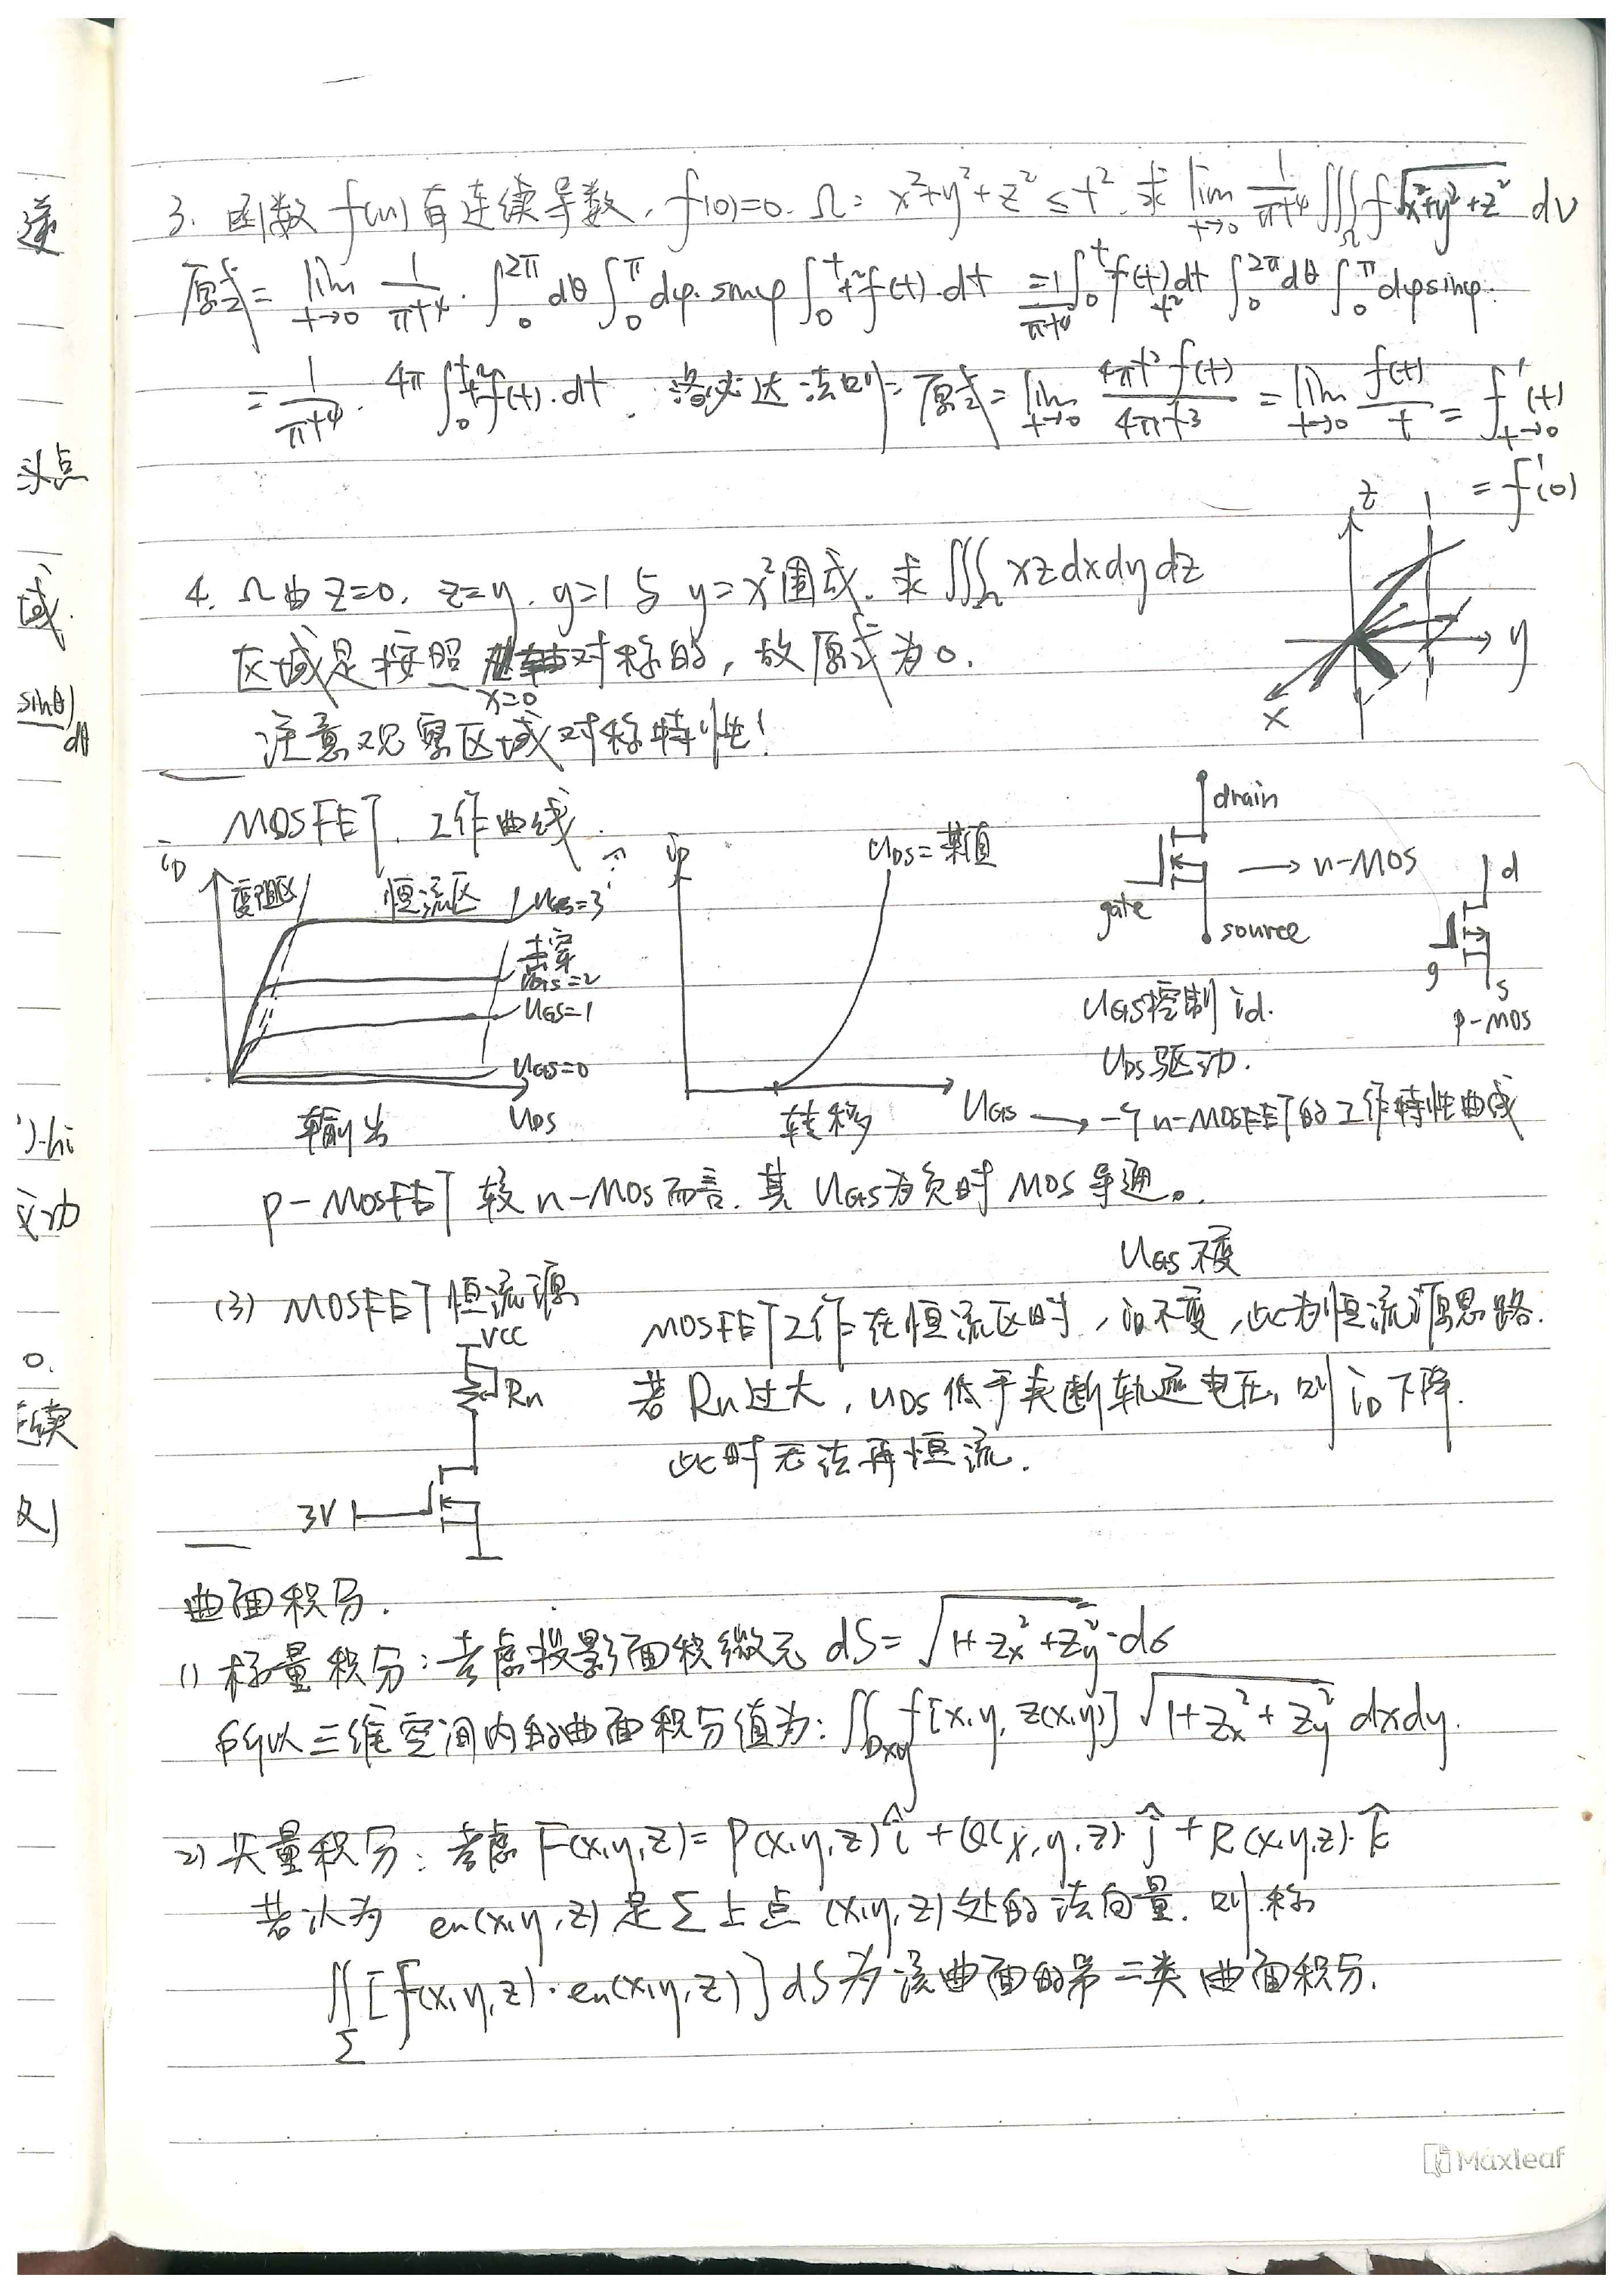 3. 函数 f(u) 有连续导数, f(0)=0. Ω: x²+y²+z² ≤ t². 求 lim t→0 1/πt⁴ ∭Ω f√x²+y²+z² dv
原式 = lim t→0 1/πt⁴ · ∫₀^2π dθ ∫₀^π dφ·sinφ ∫₀^t t²f(t)·dt = 1/πt⁴ ∫₀^t f(t)t² dt ∫₀^2π dθ ∫₀^π dφ sinφ.
= 1/πt⁴ · 4π ∫₀^t t²f(t)·dt. 洛必达法则: 原式 = lim t→0 4πt² f(t)/4πt³ = lim t→0 f(t)/t = f'(t) t→0
= f'(0)
4. Ω由 z=0, z=y, y=1 与 y=x² 围成. 求 ∭Ω xzdxdydz
区域是按照 x=0 对称的, 故原式为0.
注意观察区域对称特性!
z
1
y
x
MOSFET 工作曲线.
iD
变阻区
恒流区
UGS=3
击穿
UGS=2
UGS=1
UGS=0
UDS
输出
iD
UDS=某值
UGS
转移
→ 一个n-MOSFET的工作特性曲线
drain
gate
source
→ n-MOS
d
g
s
p-MOS
UGS控制 id.
UDS驱动.
p-MOSFET 较 n-MOS而言. 其 UGS为负时 MOS 导通。
(3) MOSFET恒流源
VCC
Rn
3V
UGS不变
MOSFET工作在恒流区时, iD不变, 此为恒流源思路.
若 Rn过大, UDS 低于夹断轨迹电压, 则 iD下降.
此时无法再恒流.
曲面积分.
1) 标量积分: 考虑投影面积微元 dS = √1+zx²+zy² · dσ
所以三维空间内的曲面积分值为: ∬Dxy f[x,y,z(x,y)] √1+zx²+zy² dxdy.
2) 矢量积分: 考虑 F(x,y,z) = P(x,y,z) î + Q(x,y,z)· ĵ + R(x,y,z)· k̂
若认为 en(x,y,z) 是 Σ 上点 (x,y,z) 处的法向量. 则称
∬Σ [F(x,y,z)·en(x,y,z)] dS 为该曲面的第二类曲面积分.
Maxleaf
递
求点
域.
sinθ)
dθ
0.
连续